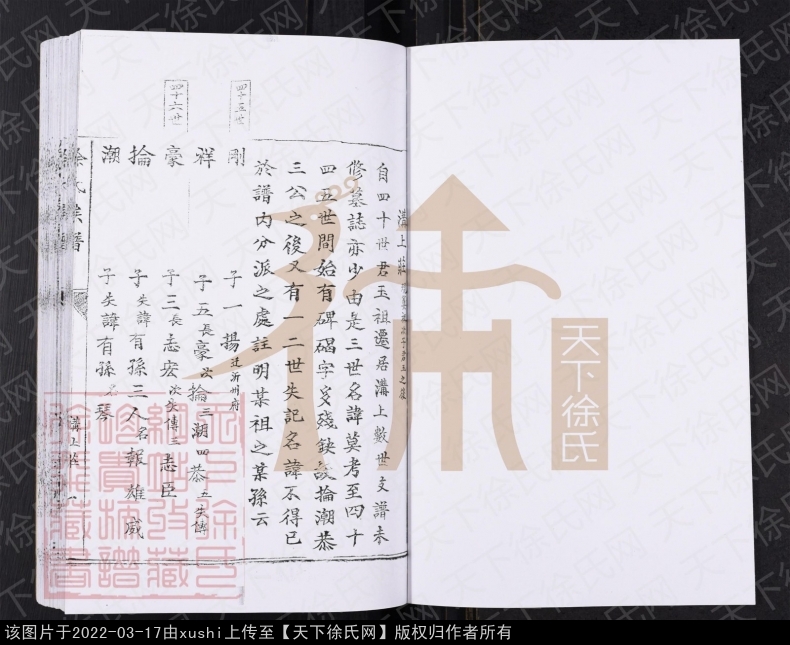 溝上莊
自四十世君玉祖遷居溝上數世支譜未
修墓誌亦少由是三世名諱莫考至四十
四五世間始有碑碣字多殘缺談掄潮恭
三公之後又有一二世失記名諱不得已
於譜內分派之處註明某祖之某孫云
四十五世
剛 子一揚遷沂州府
祥 子五長豪次掄三潮四恭五失傳
四十六世
豪 子三長志宏次失傳三志臣
掄 子失諱有孫三人名報雄威
潮 子失諱有孫名琴
徐氏族譜
溝上莊
一
天下徐氏
天下徐氏网
该图片于2022-03-17由xushi上传至【天下徐氏网】版权归作者所有